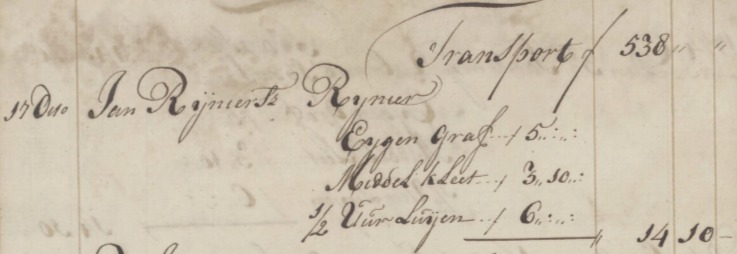 Transport ƒ 538 " "
17 Dito Jan Rijniersz Rynier
Eygen Graf - ƒ 5 " : " :
Middel kleet - ƒ 3 " 10 " :
1/2 Uur Luijen - ƒ 6 " : " :
" 14 10 -